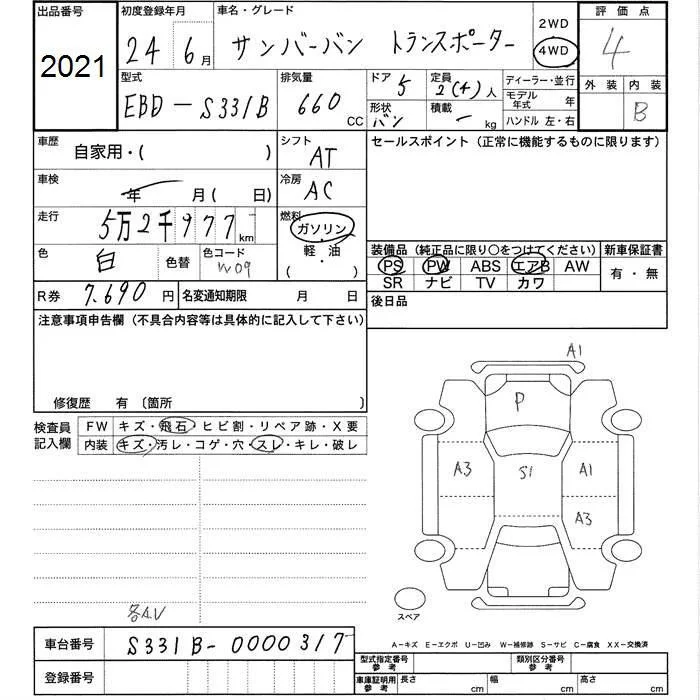 出品番号 2021
初度登録年月 24 6月
車名・グレード サンバーバン トランスポーター
2WD
4WD
評価点 4
外装 内装 B
型式 EBD-S331B
排気量 660 CC
ドア 5
形状 バン
定員 2(4)人
積載 - kg
ディーラー・並行
モデル年式 年
ハンドル 左・右
車歴 自家用・( )
シフト AT
セールスポイント (正常に機能するものに限ります)
車検 年 月( 日)
冷房 AC
走行 5万2千977km
燃料 ガソリン・軽・油 ( )
色 白
色替
色コード W09
装備品 (純正品に限り○をつけてください)
新車保証書
PS PW ABS エアB AW
SR ナビ TV カワ
有・無
R券 7.690円
名変通知期限 月 日
後日品
注意事項申告欄 (不具合内容等は具体的に記入して下さい)
修復歴 有 〔箇所 〕
検査員記入欄
FW キズ・飛石・ヒビ割・リペア跡・X要
内装 キズ・汚レ・コゲ・穴・スレ・キレ・破レ
A1
P
A3 S1 A1
A3
スペア
各A.V
A-キズ E-エクボ U-凹み W-補修跡 S-サビ C-腐食 XX-交換済
車台番号 S331B-0000317
登録番号
型式指定番号参考
類別区分番号参考
車庫証明用参考 長さ cm 幅 cm 高さ cm